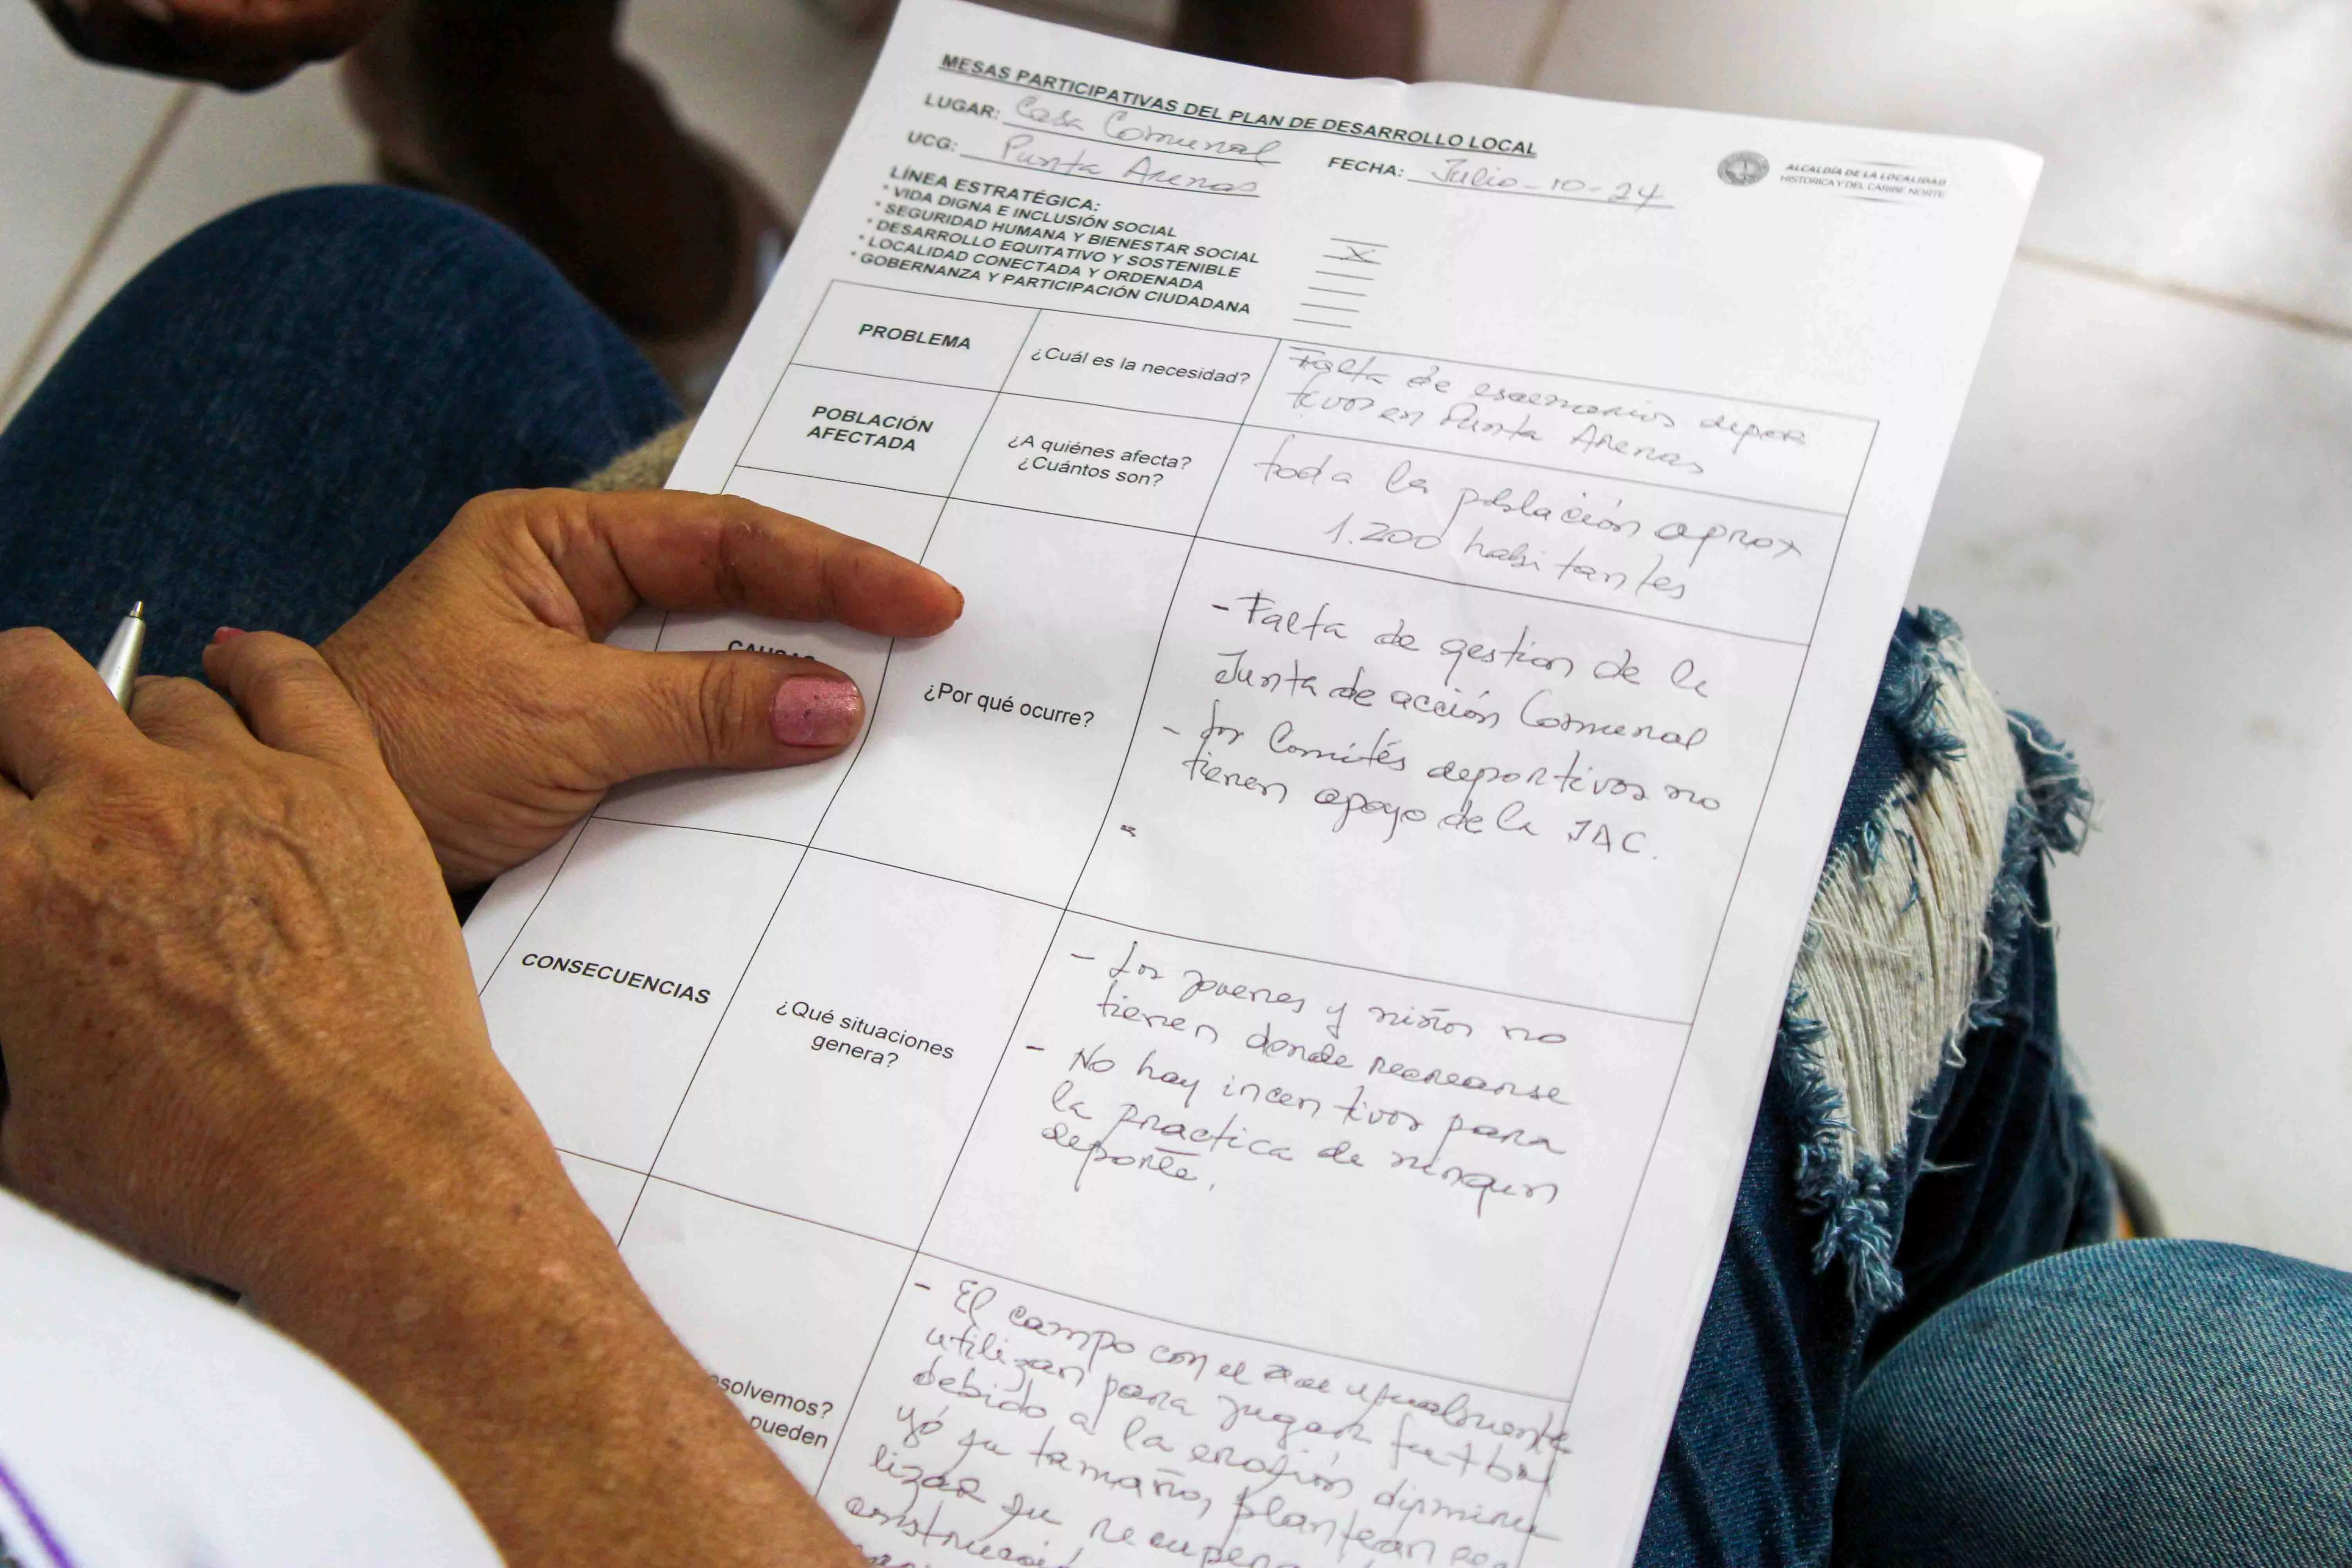 MESAS PARTICIPATIVAS DEL PLAN DE DESARROLLO LOCAL
LUGAR: Casa Comunal
UCG: Punta Arenas
FECHA: Julio-10-24
ALCALDÍA DE LA LOCALIDAD
HISTORICA Y DEL CARIBE NORTE
LÍNEA ESTRATÉGICA:
* VIDA DIGNA E INCLUSIÓN SOCIAL
* SEGURIDAD HUMANA Y BIENESTAR SOCIAL X
* DESARROLLO EQUITATIVO Y SOSTENIBLE
* LOCALIDAD CONECTADA Y ORDENADA
* GOBERNANZA Y PARTICIPACIÓN CIUDADANA
PROBLEMA
¿Cuál es la necesidad?
Falta de escenarios depor
tivos en Punta Arenas
POBLACIÓN
AFECTADA
¿A quiénes afecta?
¿Cuántos son?
toda la población aprox
1.200 habitantes
CAUSAS
¿Por qué ocurre?
- Falta de gestion de la
Junta de acción Comunal
- Los Comités deportivos no
tienen apoyo de la JAC.
-
CONSECUENCIAS
¿Qué situaciones
genera?
- Los jovenes y niños no
tienen donde recrearse
- No hay incentivos para
la practica de ningun
deporte.
solvemos?
pueden
- El campo con el que
utilizan para jugar futbol
debido a la erosión disminu
yó su tamaño, plantean rea
lizar su recupera
construcció